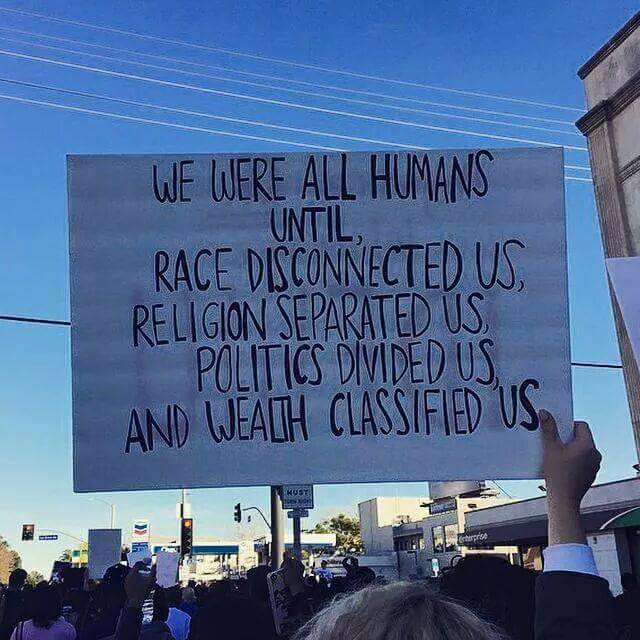 WE WERE ALL HUMANS
UNTIL,
RACE DISCONNECTED US,
RELIGION SEPARATED US,
POLITICS DIVIDED US,
AND WEALTH CLASSIFIED US
MUST
TURN RIGHT
Enterprise